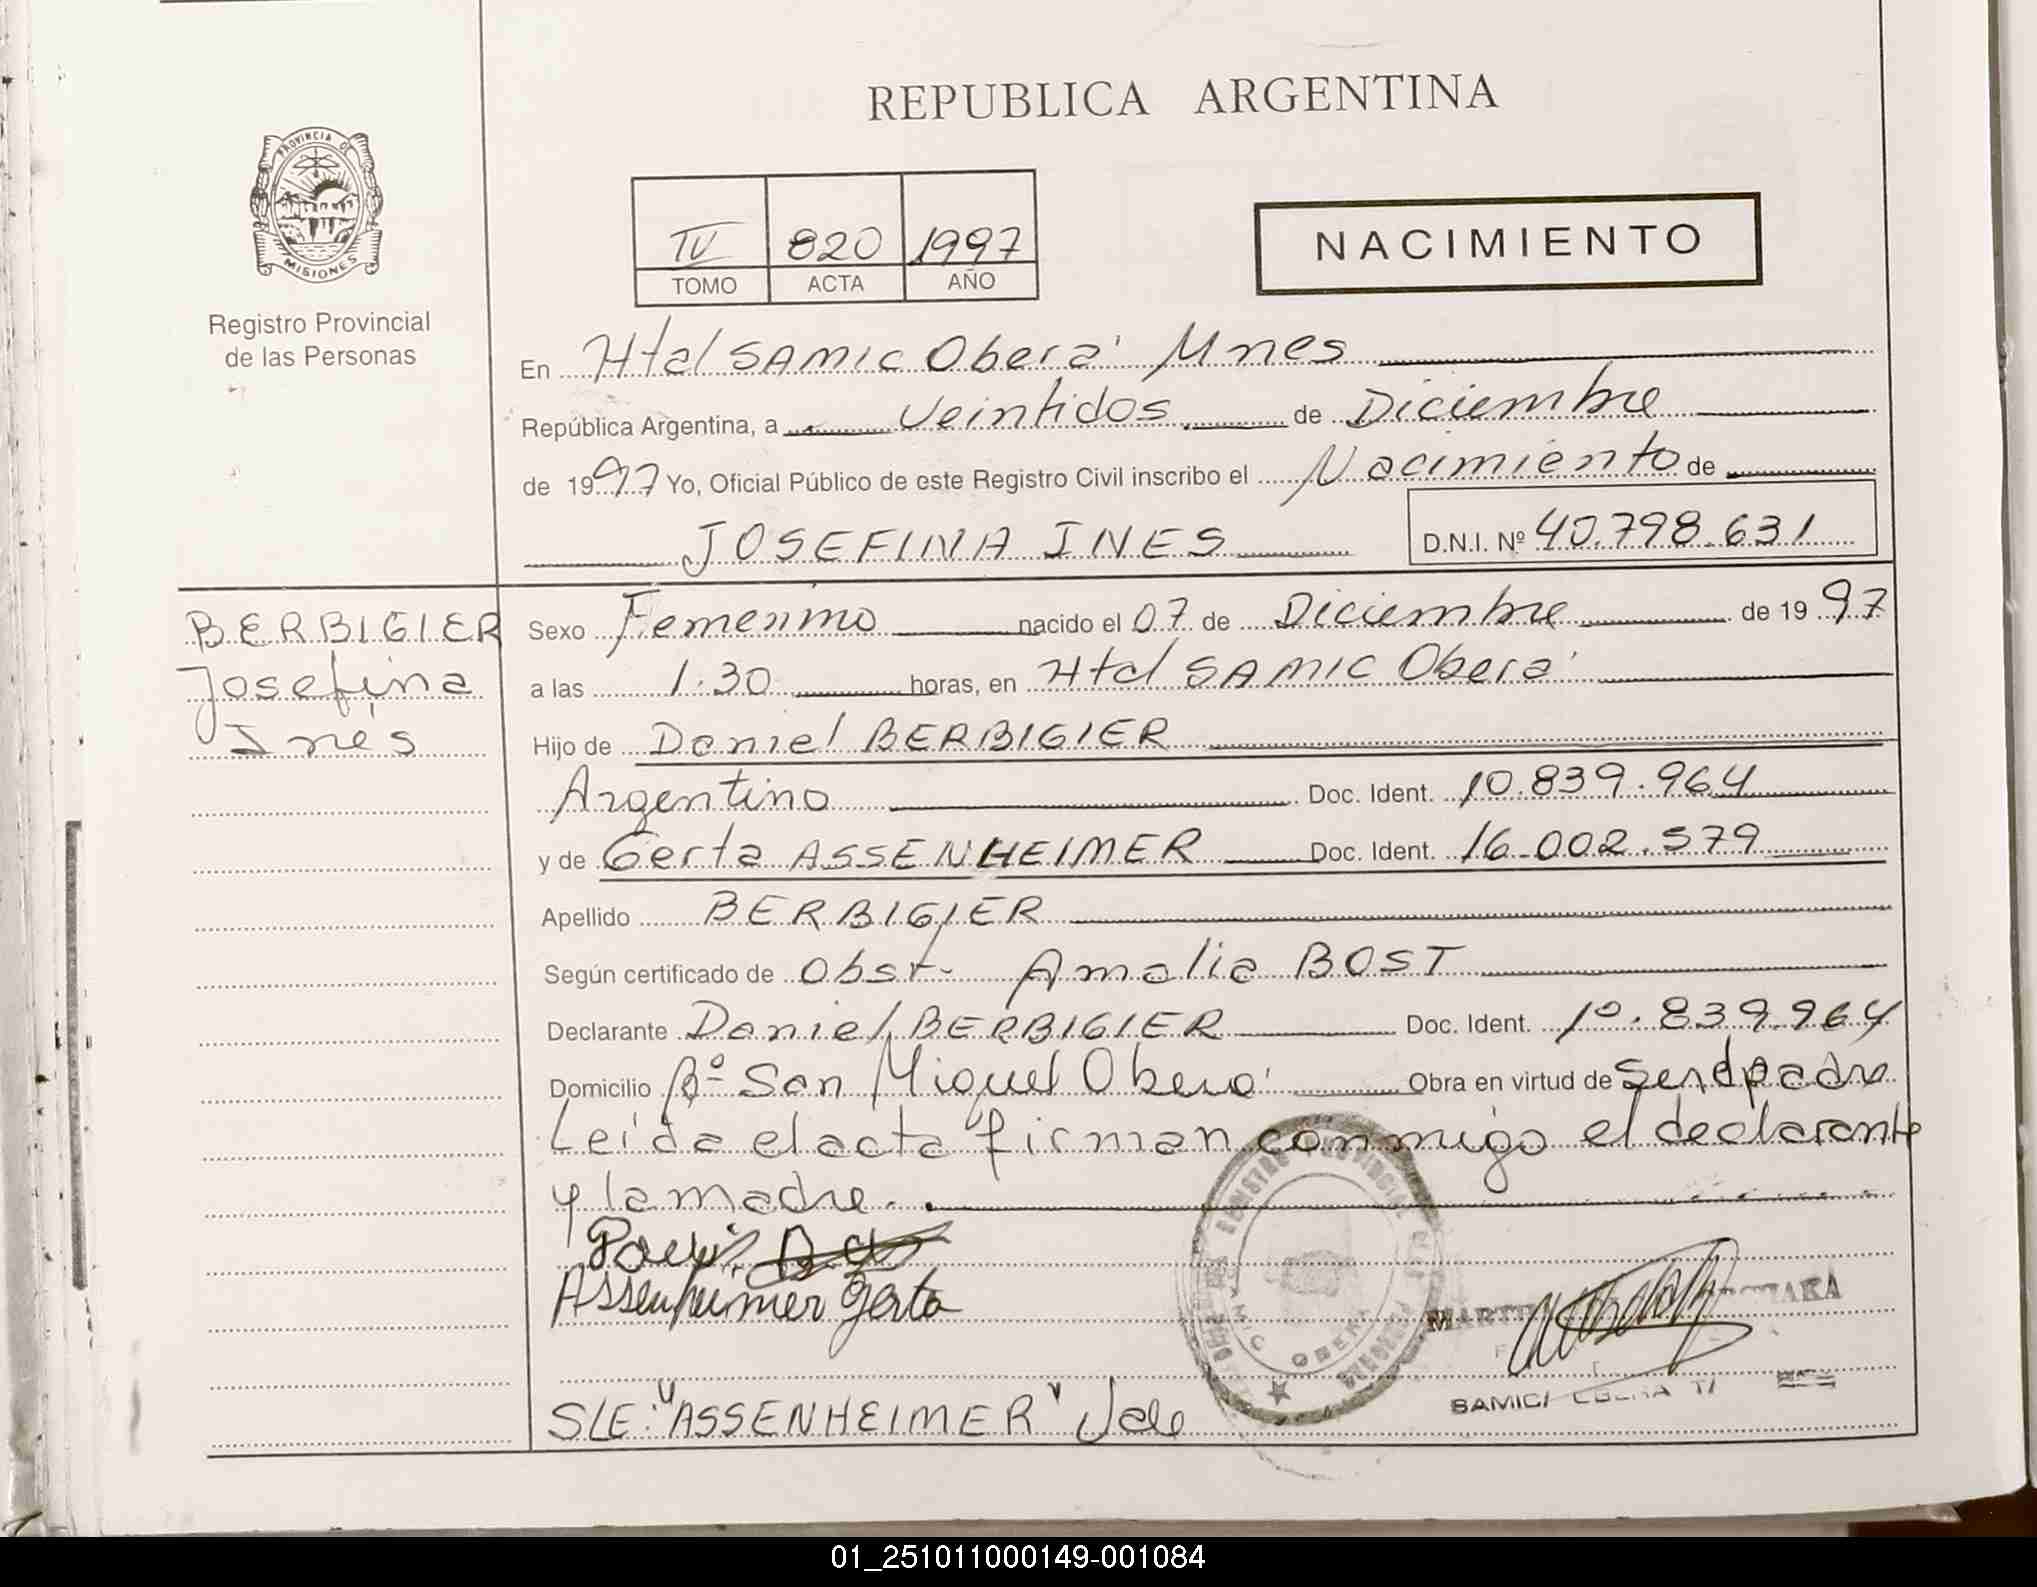 REPUBLICA ARGENTINA
PROVINCIA DE
MISIONES
Registro Provincial
de las Personas
IV 820 1997
TOMO ACTA AÑO
NACIMIENTO
En Htal SAMIC Oberá Mnes
República Argentina, a Veintidos de Diciembre
de 1997 Yo, Oficial Público de este Registro Civil inscribo el Nacimiento de
JOSEFINA INES D.N.I. Nº 40.798.631
BERBIGIER
Josefina
Inés
Sexo Femenino nacido el 07 de Diciembre de 1997
a las 1.30 horas, en Htal SAMIC Oberá
Hijo de Daniel BERBIGIER
Argentino Doc. Ident. 10.839.964
y de Gerta ASSENHEIMER Doc. Ident. 16.002.579
Apellido BERBIGIER
Según certificado de Obst. Amalia BOST
Declarante Daniel BERBIGIER Doc. Ident. 10.839.964
Domicilio Bº San Miguel Oberá Obra en virtud de Ser el padre
Leída el acta firman conmigo el declarante
y la madre.
Assenheimer Gerta
SAMIC
S/E: "ASSENHEIMER" Vale
01_251011000149-001084